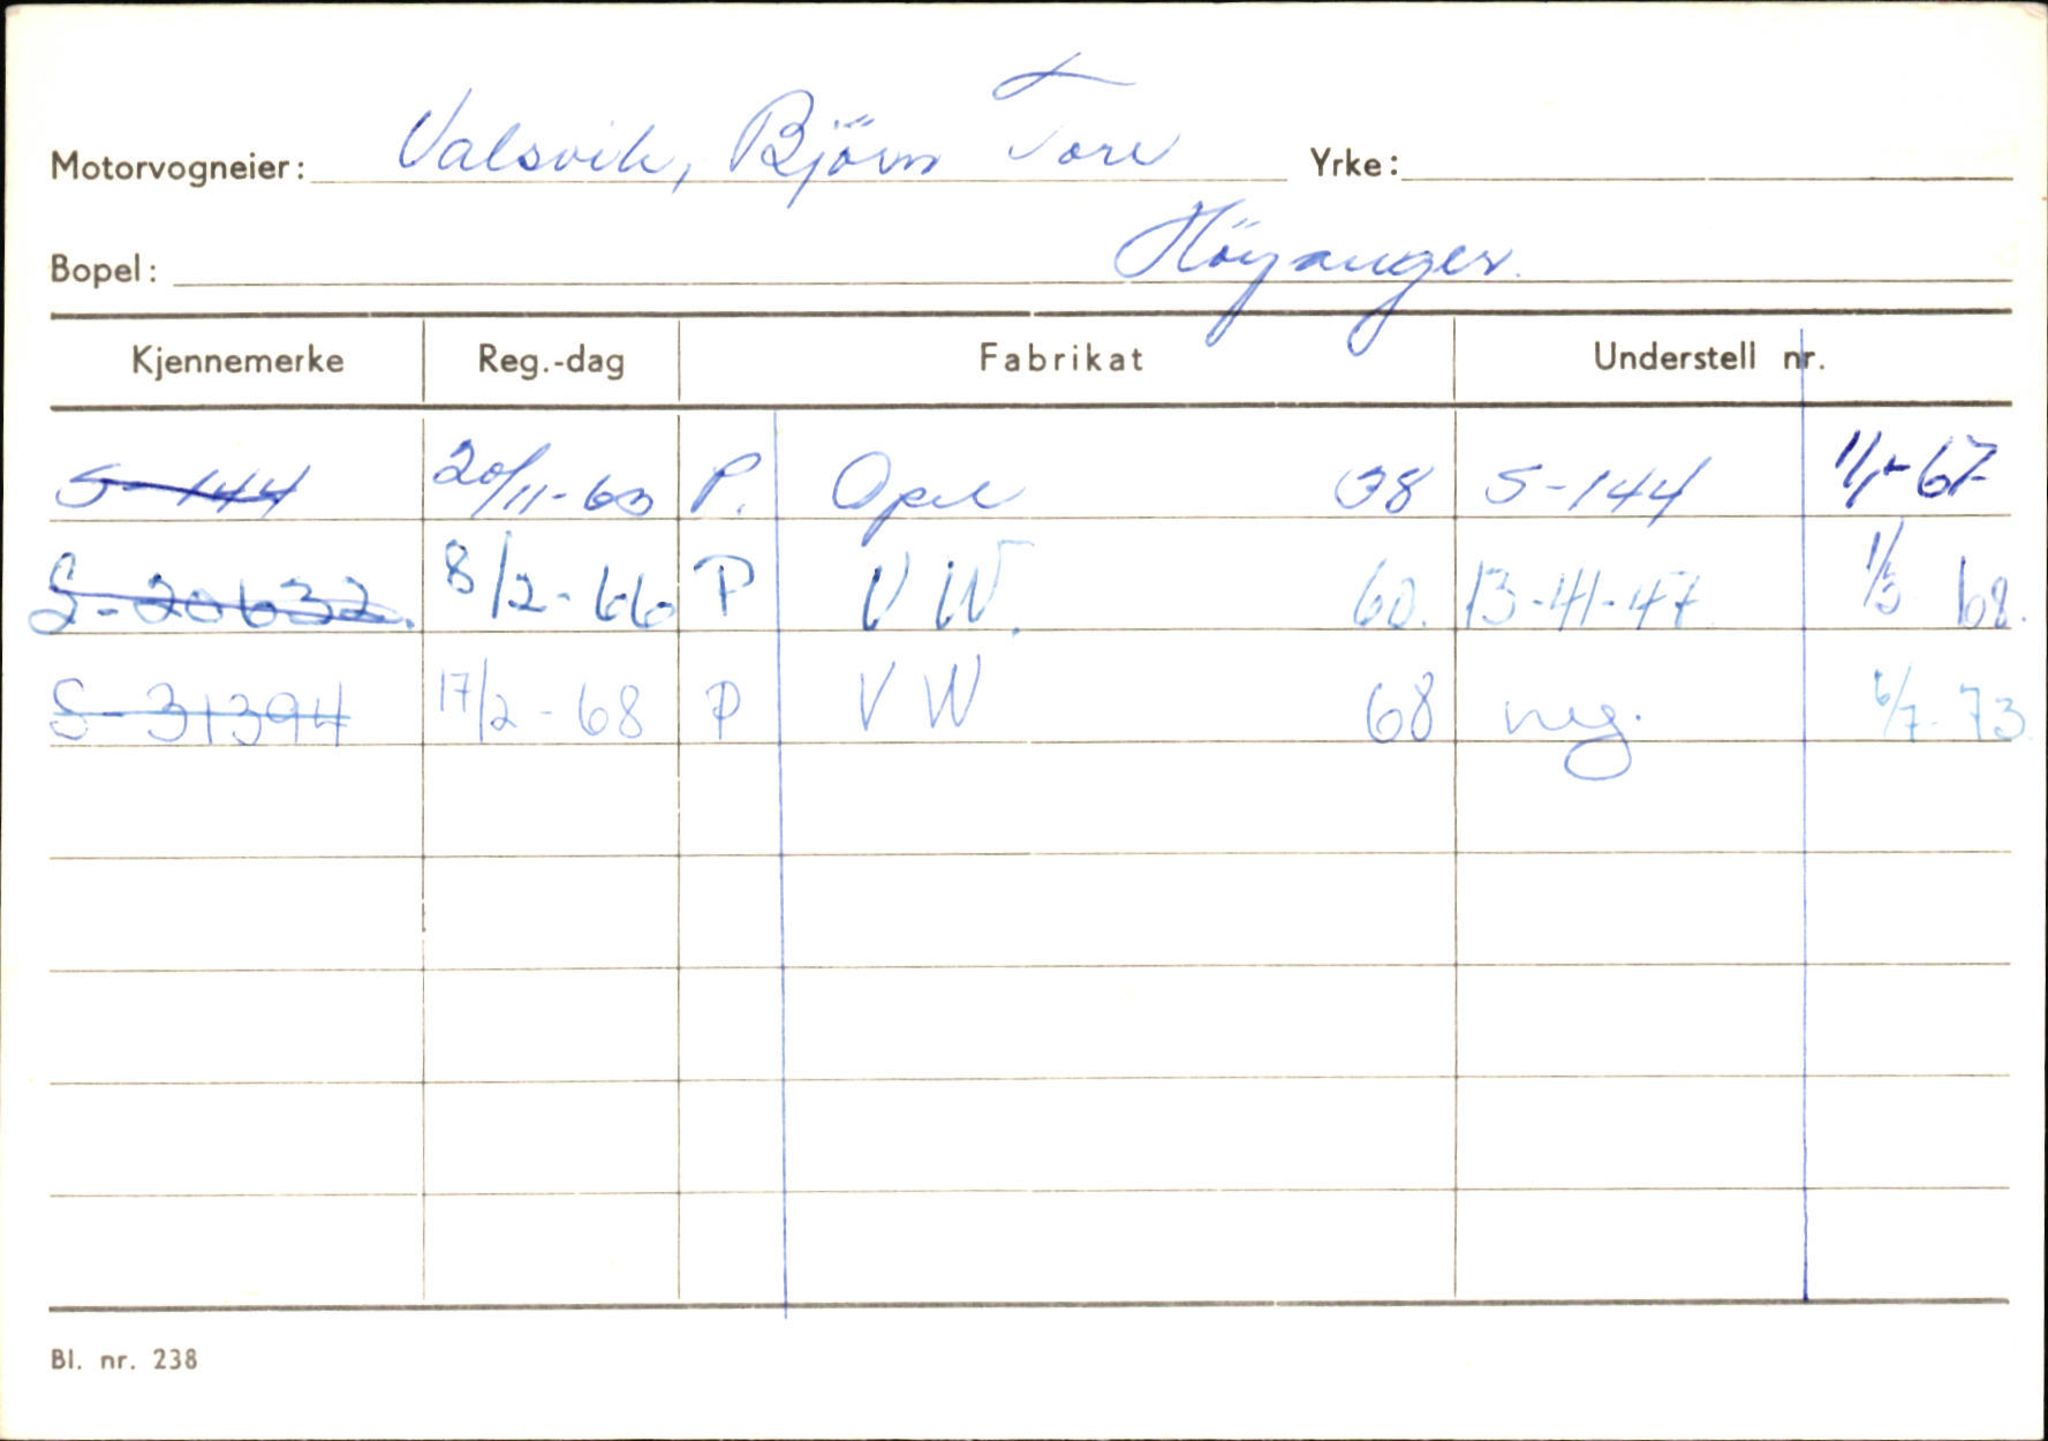 Motorvogneier: Valsvik, Björn Tore Yrke:
Bopel: Höyanger.
Kjennemerke Reg.-dag Fabrikat Understell nr.
S-144 20/11-63 P. Opel 38 S-144 1/1-67
S-20632. 8/2-66 P VW. 60. 13-41-47 1/3 68.
S-31394 17/2-68 P VW 68 ny. 6/7-73.
Bl. nr. 238